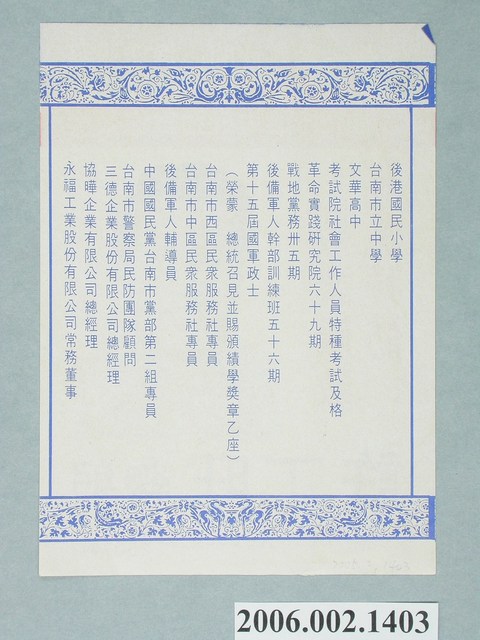 後港國民小學
台南市立中學
文華高中
考試院社會工作人員特種考試及格
革命實踐研究院六十九期
戰地黨務卅五期
後備軍人幹部訓練班五十六期
第十五屆國軍政士
（榮蒙　總統召見並賜頒績學獎章乙座）
台南市西區民衆服務社專員
台南市中區民衆服務社專員
後備軍人輔導員
中國國民黨台南市黨部第二組專員
台南市警察局民防團隊顧問
三德企業股份有限公司總經理
協暉企業有限公司總經理
永福工業股份有限公司常務董事
2006.002.1403